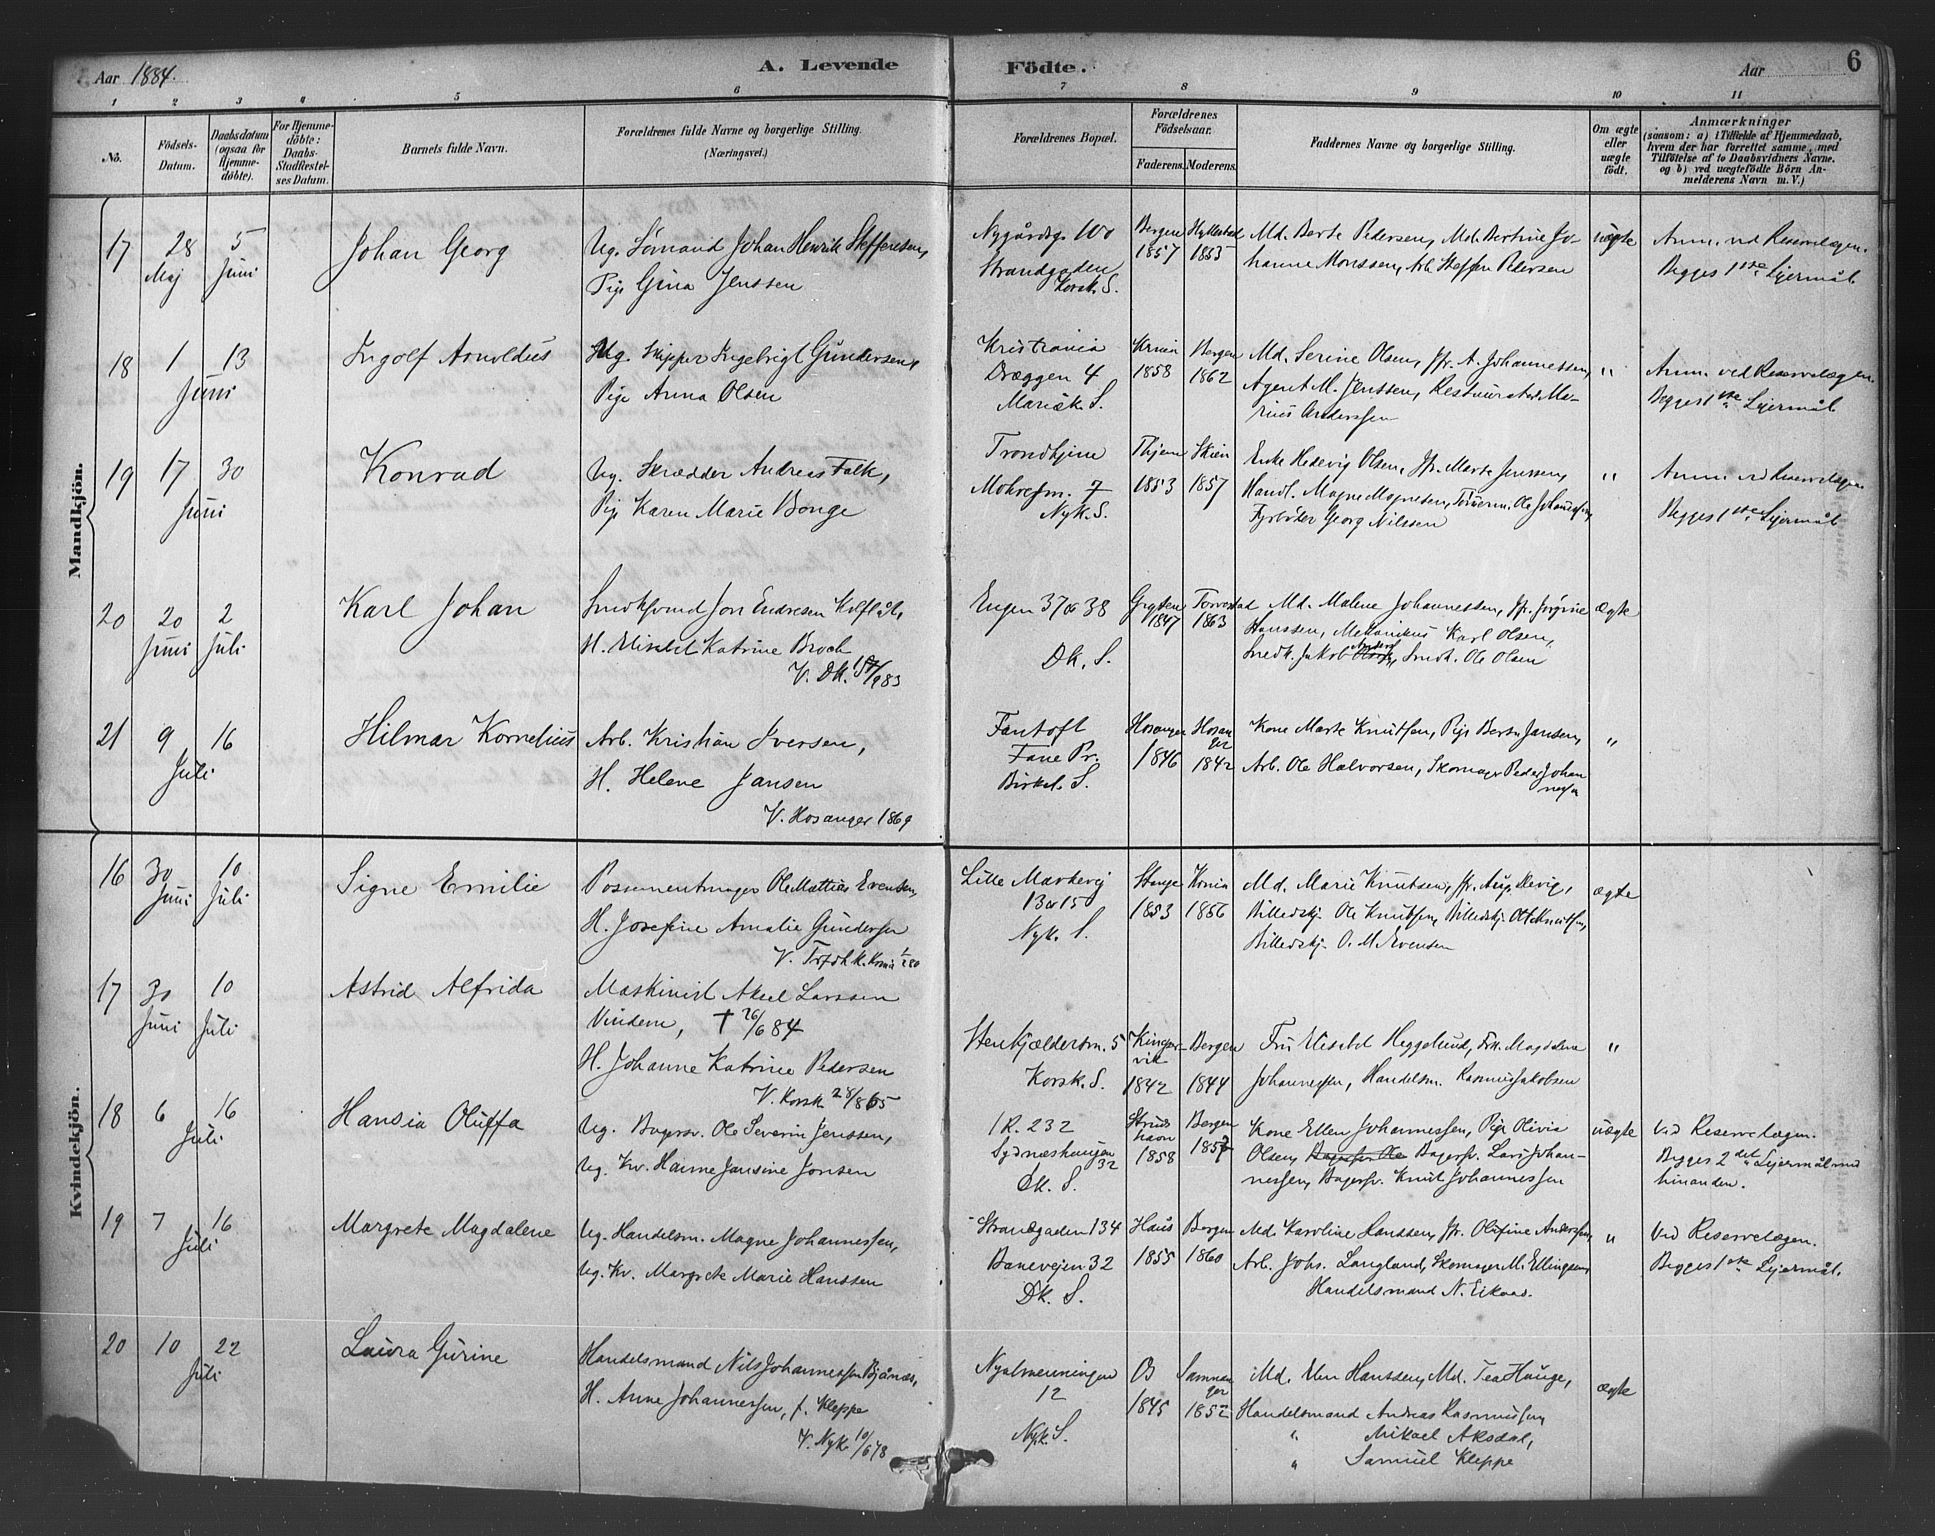 Aar 1884.
A. Levende
Födte.
Aar
6
1 2 3 4 5 6 7 8 9 10 11
No.
Födsels-
Datum.
Daabsdatum
(ogsaa for
Hjemme-
döbte).
For Hjemme-
döbte:
Daabs-
Stadfestel-
ses Datum.
Barnets fulde Navn.
Forældrenes fulde Navne og borgerlige Stilling.
(Næringsvei.)
Forældrenes Bopæl.
Forældrenes
Födselsaar.
Faderens. Moderens.
Faddernes Navne og borgerlige Stilling.
Om ægte
eller
uægte
födt.
Anmærkninger
(saasom: a) i Tilfælde af Hjemmedaab,
hvem der har forrettet samme, med
Tilföielse af to Daabsvidners Navne.
og b) ved uægtefödte Börn An-
melderens Navn m. V.)
Mandkjön.
17 28 Maj 5 Juni
Johan Georg
Ug. Sömand Johan Henrik Steffensen,
Pige Gina Jenssen
Nygårdsg.
Strandgaden
Korsk. S.
Bergen 1857
Hyllestad 1853
Md. Berte Pedersen, Md. Bertine Jo-
hanne Monssen, Arb. Steffen Pedersen
uægte
Anm. ved Reservelægen.
Begges 1ste Lejermål
18 1 13 Juni
Ingolf Arnoldus
Ug. Skipper Ingebrigt Gundersen,
Pige Anna Olsen
Kristiania
Dræggen 4
Mariek. S.
Krnia 1858
Bergen 1862
Md. Serine Olsen, Jfr. A. Johannessen,
Agent M. Jenssen, Restauratør Ma-
rius Anderssen
"
Anm. ved Reservelægen
Begges 1ste Lejermål
19 17 30 Juni
Konrad
Ug. Skrædder Andreas Falk,
Pige Karen Marie Bonge
Trondhjem
Mohresm. 7
Nyk. S.
Thjem 1853
Skien 1857
Enke Hedevig Olsen, Jfr. Marte Jenssen,
Handl. Magne Magnesen, Ole Johannessen,
Fyrböder Georg Nilssen
"
Anm. ved Reservelægen
Begges 1ste Lejermål
20 20 Juni 2 Juli
Karl Johan
H. Elisabet Katrine Broch
V. Dk.
Engen 37 & 38
Dk. S.
1847
Torvestad 1863
Md. Malene Johannessen, Jfr. Jörgine
Hanssen, Mekanikus Karl Olsen,
Snedk. Jakob Snedk. Ole Olsen
ægte
21 9 16 Juli
Hilmar Kornelius
Arb. Kristian Iversen,
H. Helene Jansen
V. Hosanger 1869
Fantoft
Fane Pr.
Birkel. S.
Hosanger 1846
Hosanger 1842
Kone Marte Knudsen, Pige Berta Jansen,
Arb. Ole Halvorsen, Skomager Peder Johan
nessen
"
Kvindekjön.
16 30 Juni 10 Juli
Signe Emilie
Possementmager Ole Mattias Evensen,
H. Josefine Amalie Gundersen
V. Trefdh. k. Krnia
Lille Markevej
13 & 15
Nyk. S.
Stange 1853
Krnia 1856
Md. Marie Knutsen, Jfr. Aug. Devig,
Billedskj. Ole Knutsen, Billedskj. Otto Knutsen,
Billedskj. O. M. Evensen
ægte
17 30 Juni 10 Juli
Astrid Alfrida
Maskinist Aksel Larssen
Vindem, † 26/6 84
H. Johanne Katrine Pedersen
V. Korsk. 28/8 65
Stenkjældersm. 5
Korsk. S.
Kinser-
vik
1842
Bergen 1844
Fru Elisabet Heggelund, Frk. Magdalena
Johannessen, Handelsm. Rasmus Jakobsen
"
18 6 16 Juli
Hansia Oluffa
Ug. Bagersv. Ole Severin Jenssen,
Ug. Kv. Hanne Jansine Jonsen
1 R. 232
Sydneshaugen
32
Dk. S.
Strus
havn
1858
Bergen 1857
Kone Ellen Johannessen, Pige Olivia
Olsen, Bagersv. Ole Bagersv. Lars Johan-
nessen, Bagersv. Knut Johannessen
uægte
Ved Reservelægen.
Begges 2det Lejermål med
hinanden.
19 7 16 Juli
Margrete Magdalene
Ug. Handelsm. Magne Johannessen,
Ug. Kv. Margrete Marie Hanssen
Strandgaden 134
Banevejen 32
Dk. S.
Haus 1855
Bergen 1860
Md. Karoline Hanssen, Jfr. Olefine Anderssen,
Arb. Johs. Langland, Skomager M. Ellingsen,
Handelsmand N. Eikaas.
"
Ved Reservelægen.
Begges 1ste Lejermål.
20 10 22 Juli
Laura Gurine
Handelsmand Nils Johannessen Bjånæs,
H. Anne Johannessen, f. Kleppe
V. Nyk. 10/6 78
Nyalmenningen
12
Nyk. S.
Os 1845
Samnanger 1852
Md. Hanssen, Md. Tea Hauge,
Handelsmand Andreas Rasmussen,
" Mikael Aksdal,
" Samuel Kleppe
ægte